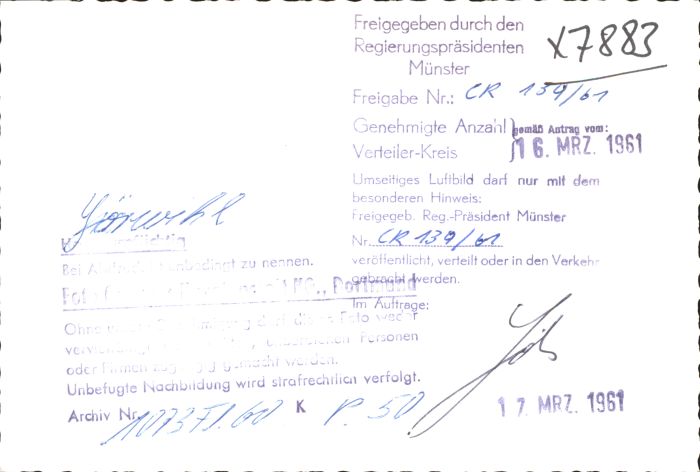 Freigegeben durch den
Regierungspräsidenten
Münster
x7883
Freigabe Nr.: CR 139/61
Genehmigte Anzahl
Verteiler-Kreis
gemäß Antrag vom:
16. MRZ. 1961
Umseitiges Luftbild darf nur mit dem
besonderen Hinweis:
Freigegeb. Reg.-Präsident Münster
Nr. CR 139/61
veröffentlicht, verteilt oder in den Verkehr
gebracht werden.
Im Auftrage:
17. MRZ. 1961
Görwihl
Bei Abdruck unbedingt zu nennen.
Dortmund
Ohne Foto weder
Personen
oder Firmen gemacht werden.
Unbefugte Nachbildung wird strafrechtlich verfolgt.
Archiv Nr. K P. 50